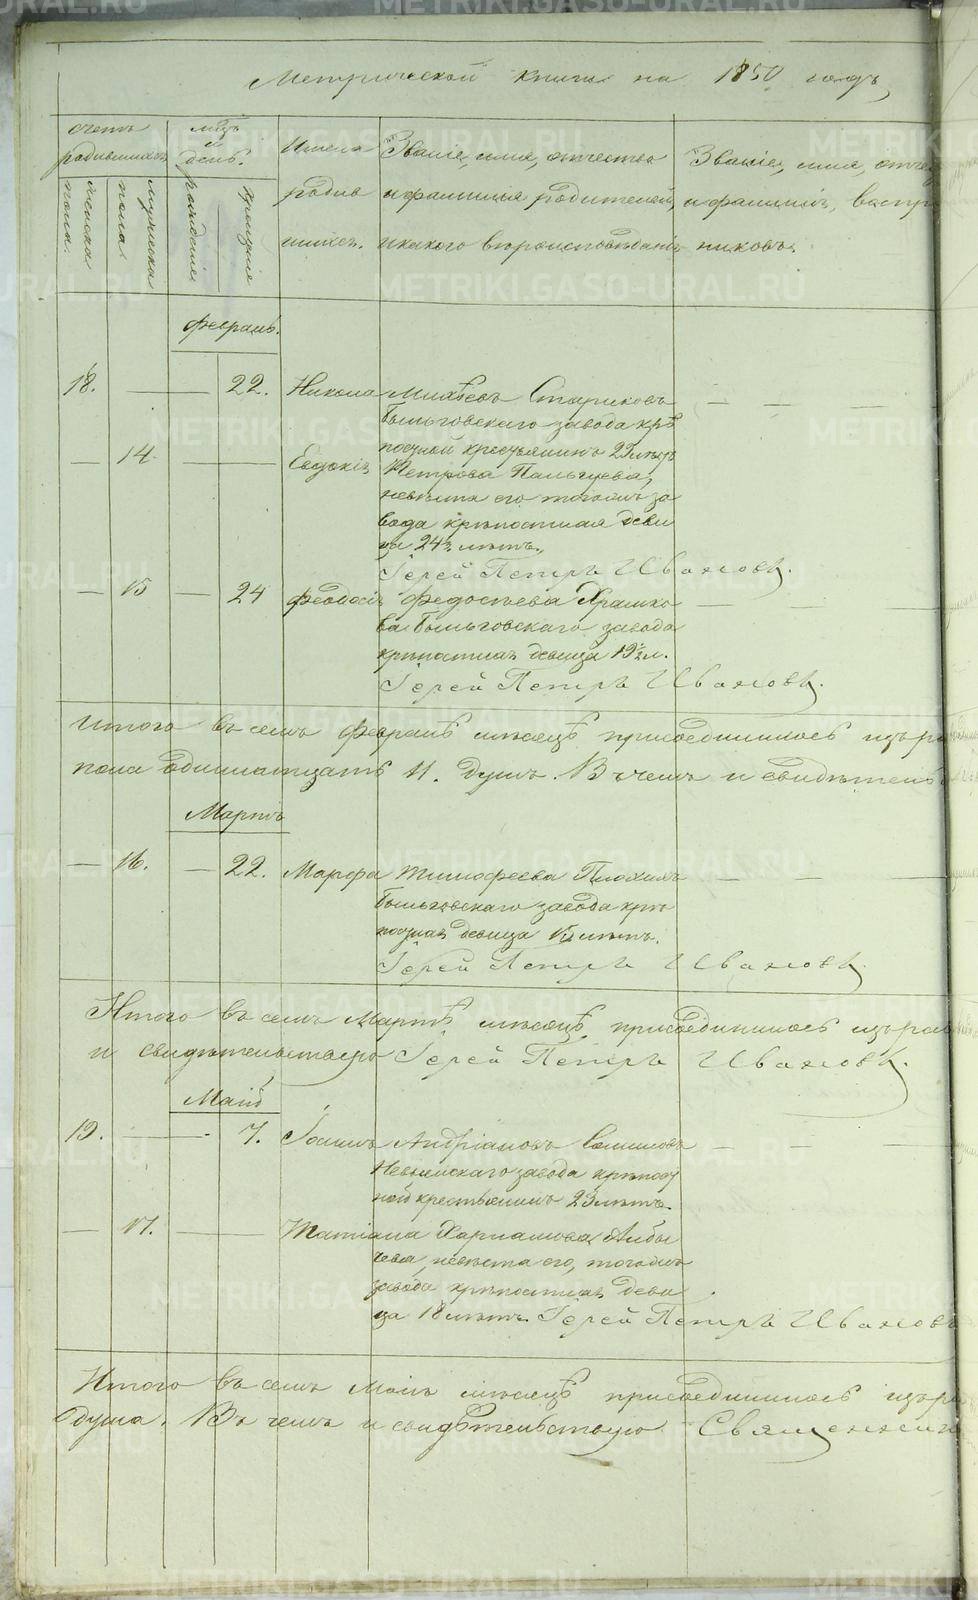 Метрической книги на 1850 годъ,
счетъ родившихся
мужеска пола
женска пола
мѣц. и день.
рожденія
крещенія
Имена родившихся.
Званіе, имя, отчество
и фамилія родителей,
и какого вѣроисповѣданія
Званіе, имя, отче
и фамилія, воспр
никовъ.
Февраль.
18. — 22. Никола Михѣевъ Стариковъ
Быньговскаго завода крѣ
постной крестьянинъ 23 лѣтъ
— 14 — Евдокія Петрова Пальцева,
невѣста его тогожъ за
вода крѣпостная деви
ца 24½ лѣтъ.,
Іерей Петръ Ивановъ.
— 15 — 24 Феодосія Федосѣева Храмко
ва Быньговскаго завода
крѣпостная девица 19½ л.
Іерей Петръ Ивановъ.
Итого въ семъ Февралѣ мѣсяцѣ присоединилось изъ ра
кола одинатцать 11. душъ. В чемъ и свидѣтель
Мартъ
— 16. — 22. Марфа Тимофеева Плохихъ
Быньговскаго завода крѣ
постная девица лѣтъ.
Іерей Петръ Ивановъ.
Итого въ семъ Мартѣ мѣсяцѣ присоединилось изъ рас
и свидѣтельствую Іерей Петръ Ивановъ.
Май
19. — 7. Іоаннъ Андріановъ
Невьянскаго завода крѣпост
ной крестьянинъ 23 лѣтъ.
— 17. — Татіана Харлампова
невѣста его, тогожъ
завода крѣпостная деви
ца 18 лѣтъ. Іерей Петръ Ивановъ
Итого въ семъ Маѣ мѣсяцѣ присоединилось изъ ра
душа. Въ чемъ и свидѣтельствую Священни
METRIKI.GASO-URAL.RU